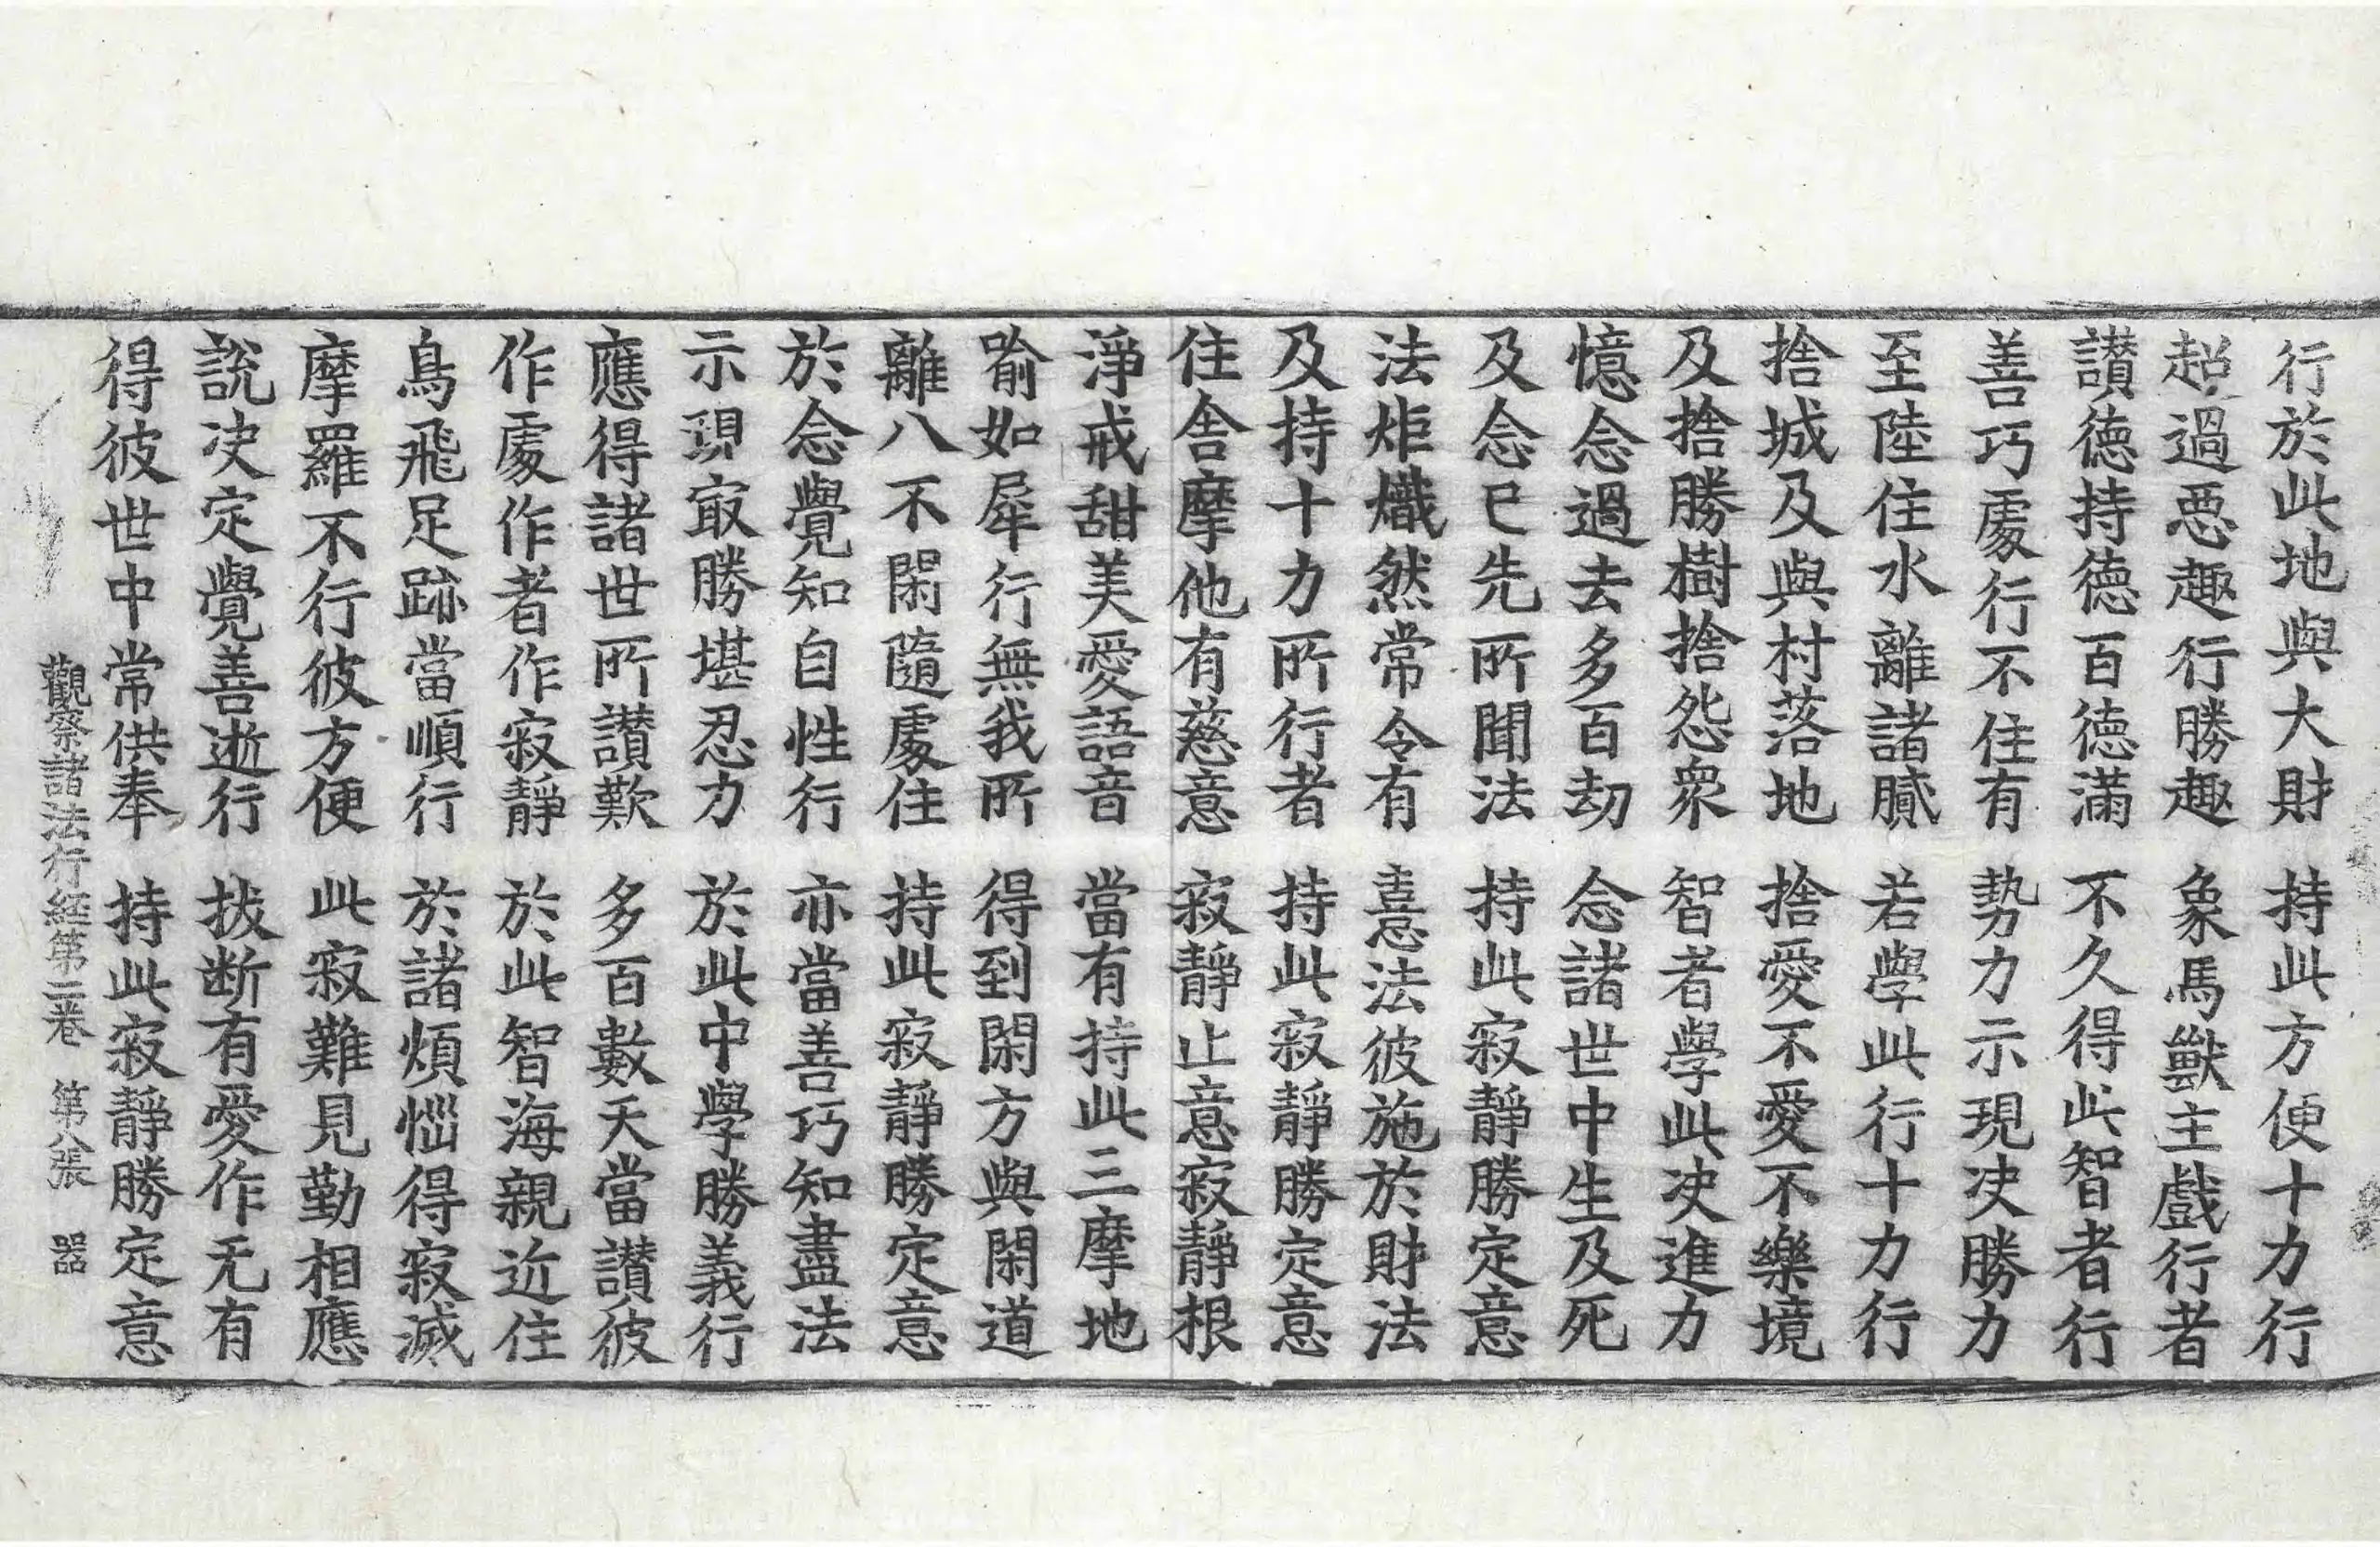 行於此地與大財 持此方便十力行
超過惡趣行勝趣 象馬獸主戲行者
讃德持德百德滿 不久得此智者行
善巧處行不住有 勢力示現决勝力
至陸住水離諸膩 若學此行十力行
捨城及與村落地 捨愛不愛不樂境
及捨勝樹捨怨衆 智者學此决進力
憶念過去多百劫 念諸世中生及死
及念已先所聞法 持此寂靜勝定意
法炬熾然常令有 憙法彼施於財法
及持十力所行者 持此寂靜勝定意
住舍摩他有慈意 寂靜止意寂靜根
淨戒甜美愛語音 當有持此三摩地
喻如犀行無我所 得到閑方與閑道
離八不閑隨處住 持此寂靜勝定意
於念覺知自性行 亦當善巧知盡法
示現㝡勝堪忍力 於此中學勝義行
應得諸世所讃歎 多百數天當讃彼
作處作者作寂靜 於此智海親近住
鳥飛足跡當順行 於諸煩惱得寂滅
摩羅不行彼方便 此寂難見勤相應
說决定覺善逝行 拔断有愛作无有
得彼世中常供奉 持此寂靜勝定意
觀察諸法行経第二卷 第八張 器